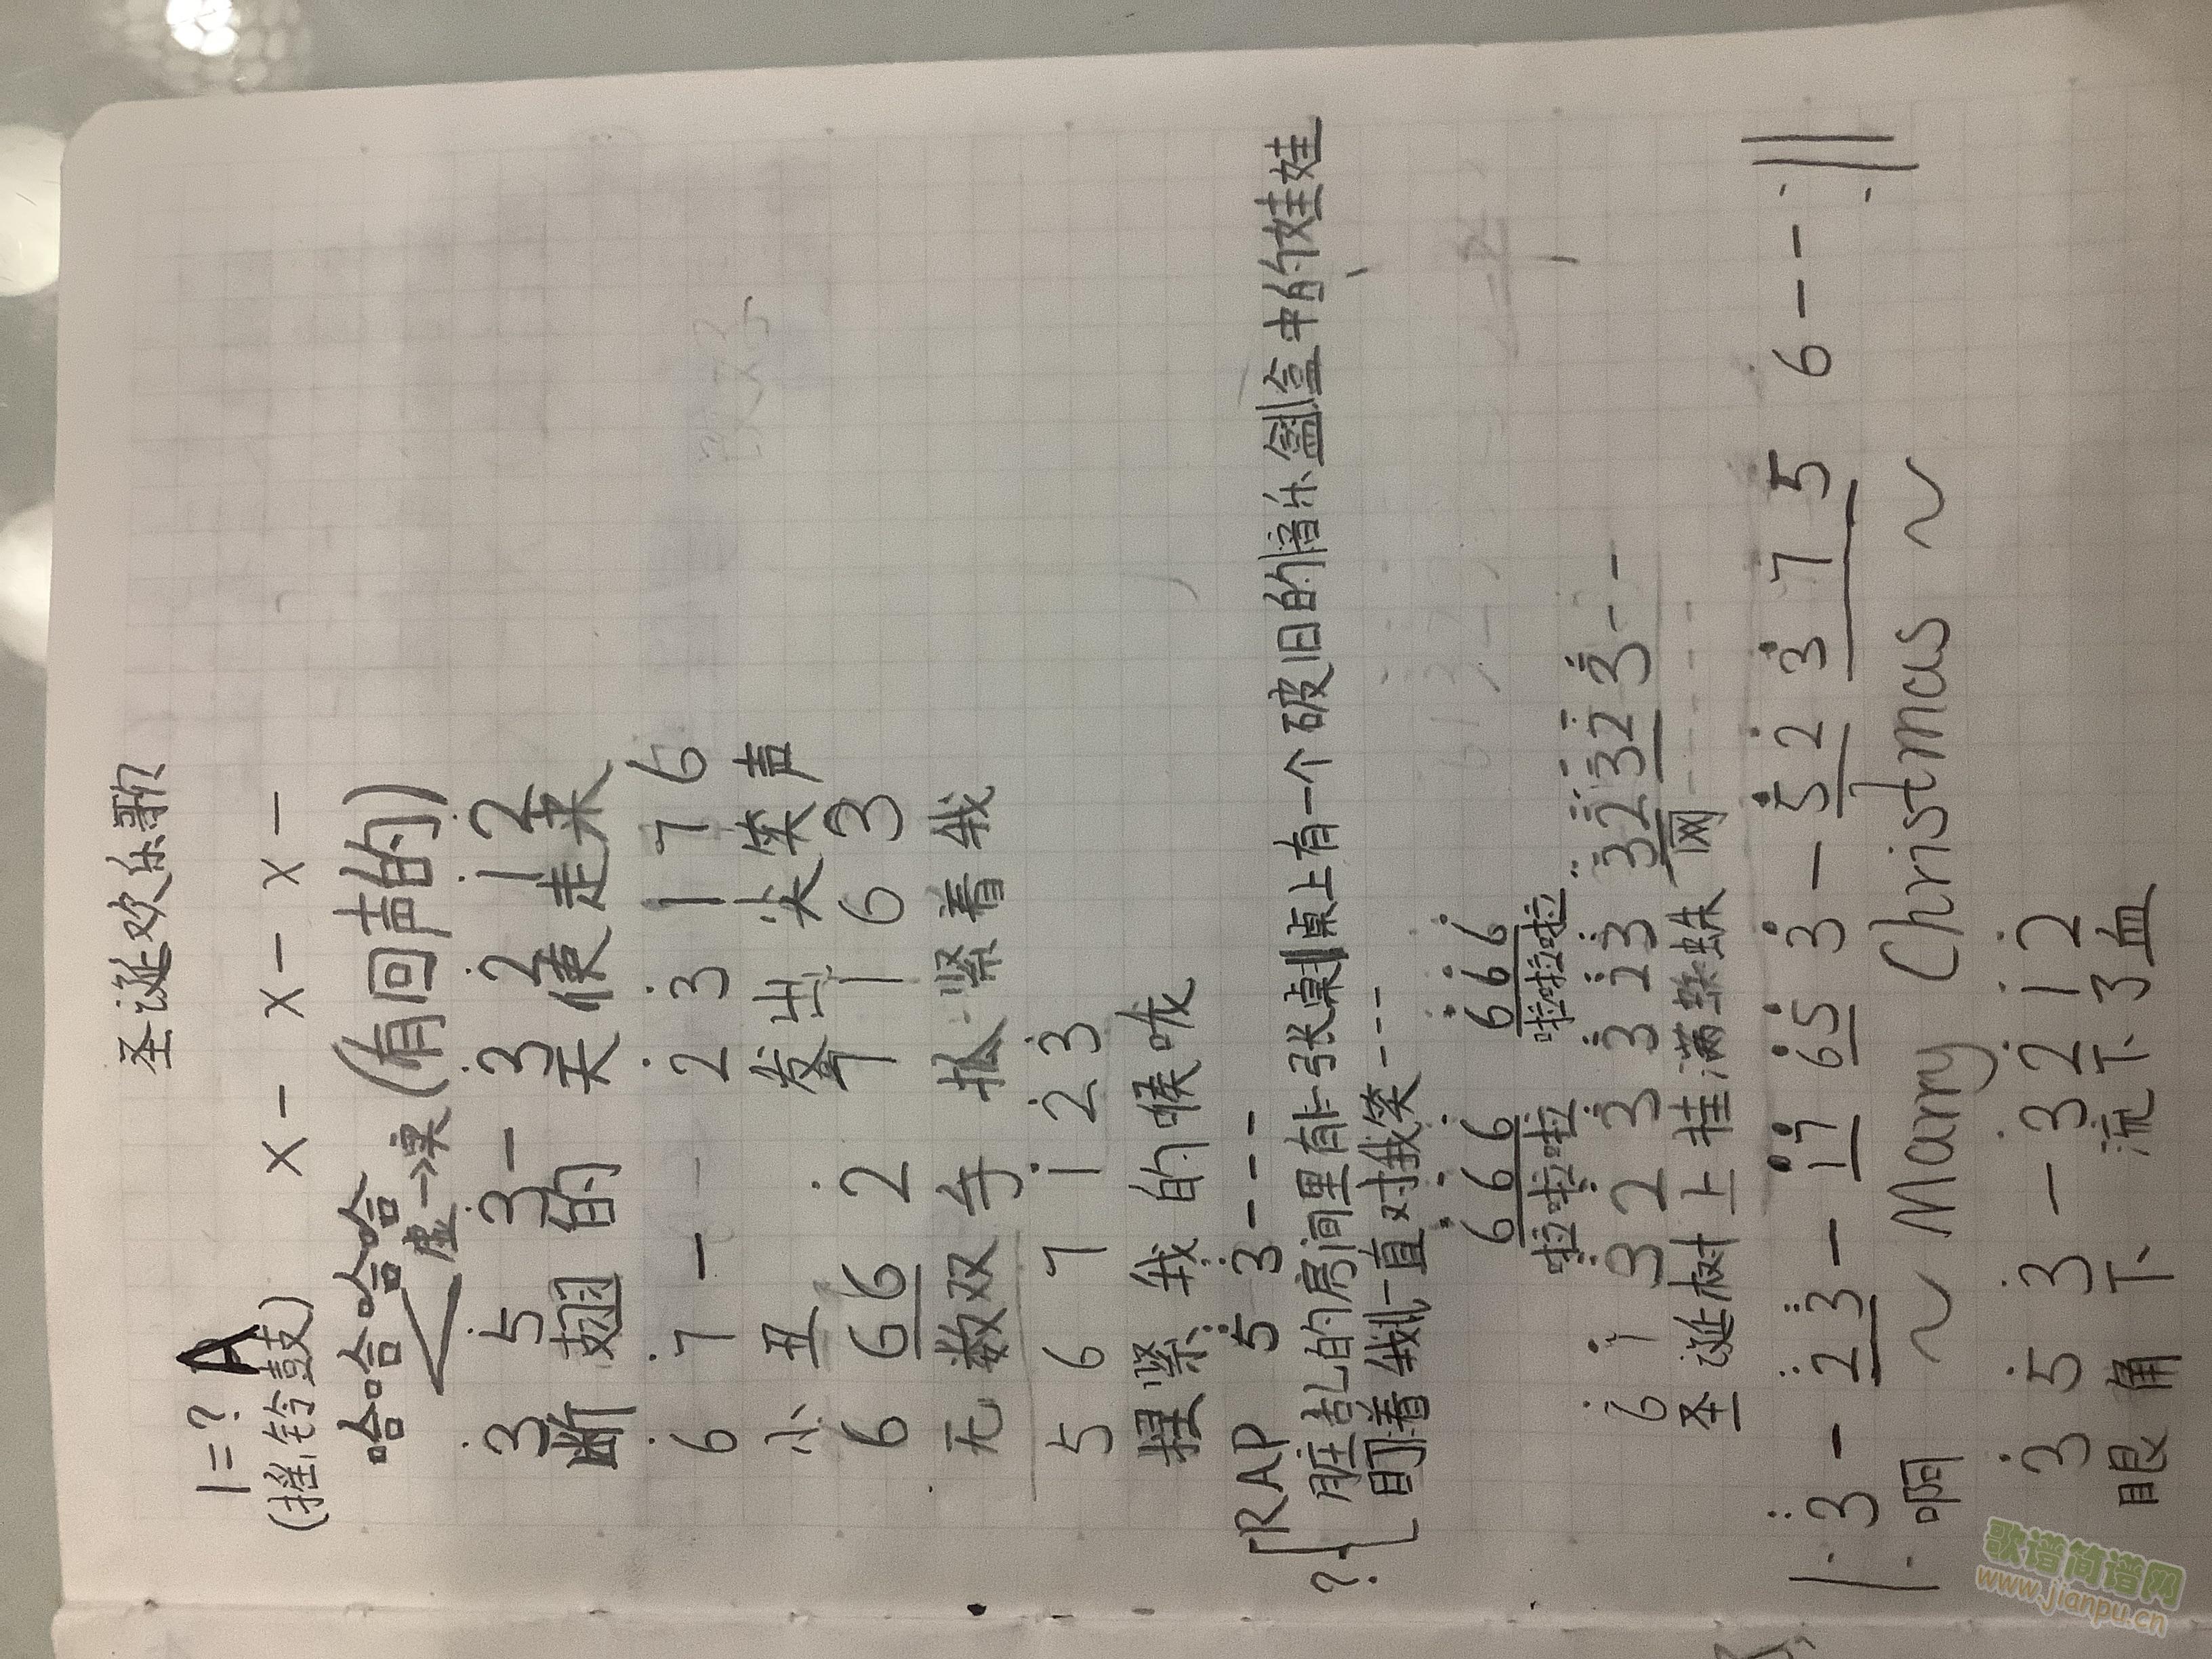 圣诞欢乐歌
1=? A
(摇铃鼓) x - x - x - x -
哈哈哈哈哈 (有回声的)
虚→实
3 5 3 - 3 2 1 2
断 翅 的 天 使 走 来
6 7 - 2 3 1 7 6
小 丑 发 出 尖 笑 声
6 6 6 2 1 1 6 3
无 数 双 手 抓 紧 着 我
5 6 7 1 2 3
捏 紧 我 的 喉咙
?{RAP 5 3 - - -
脏乱的房间里有一张桌桌上有一个破旧的音乐盒中的娃娃
盯着我一直对我笑---
6 6 6 6 6 6
啦啦啦啦 啦啦啦啦
6 1 3 2 3 3 2 3 3 2 3 2 3 - -
圣诞树上挂满蜘蛛网
|: 3 - 2 3 - 1 7 6 5 3 - 5 2 3 7 5 6 - - :||
啊 ~ Marry Christmas ~
3 5 3 - 3 2 1 2
眼角下 流下了血
歌谱简谱网
www.jianpu.cn